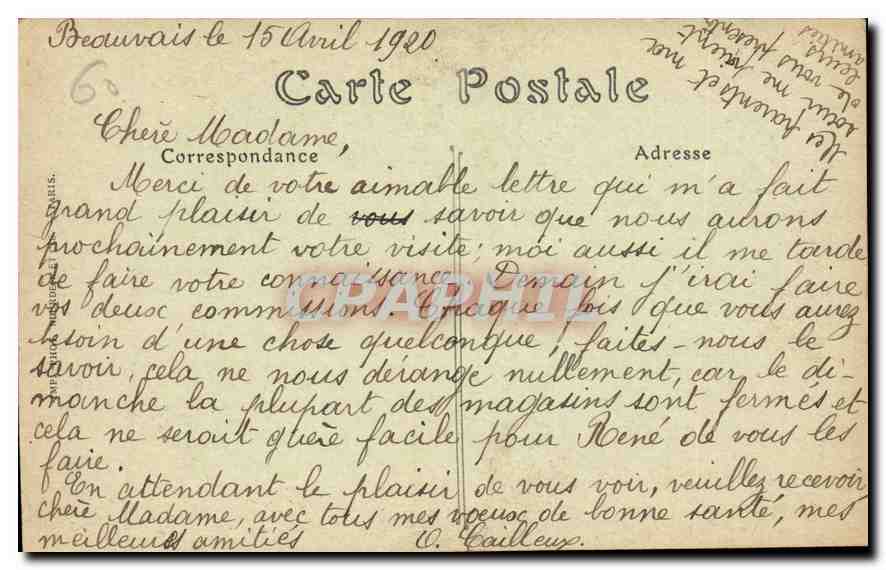 Beauvais le 15 Avril 1920
60
Carte Postale
Mes parents et ma
soeur me prient
de vous présenter
leurs
amitiés
Chère Madame,
Correspondance
Adresse
Merci de votre aimable lettre qui m'a fait
grand plaisir de vous savoir que nous aurons
prochainement votre visite; moi aussi il me tarde
de faire votre connaissance. Demain j'irai faire
vos deux commissions. Chaque fois que vous aurez
besoin d'une chose quelconque, faites-nous le
savoir, cela ne nous dérange nullement, car le di-
manche la plupart des magasins sont fermés et
cela ne serait guère facile pour René de vous les
faire.
En attendant le plaisir de vous voir, veuillez recevoir,
chère Madame, avec tous mes voeux de bonne santé, mes
meilleures amitiés
O. Cailleux.
CPAPHIL
PARIS.